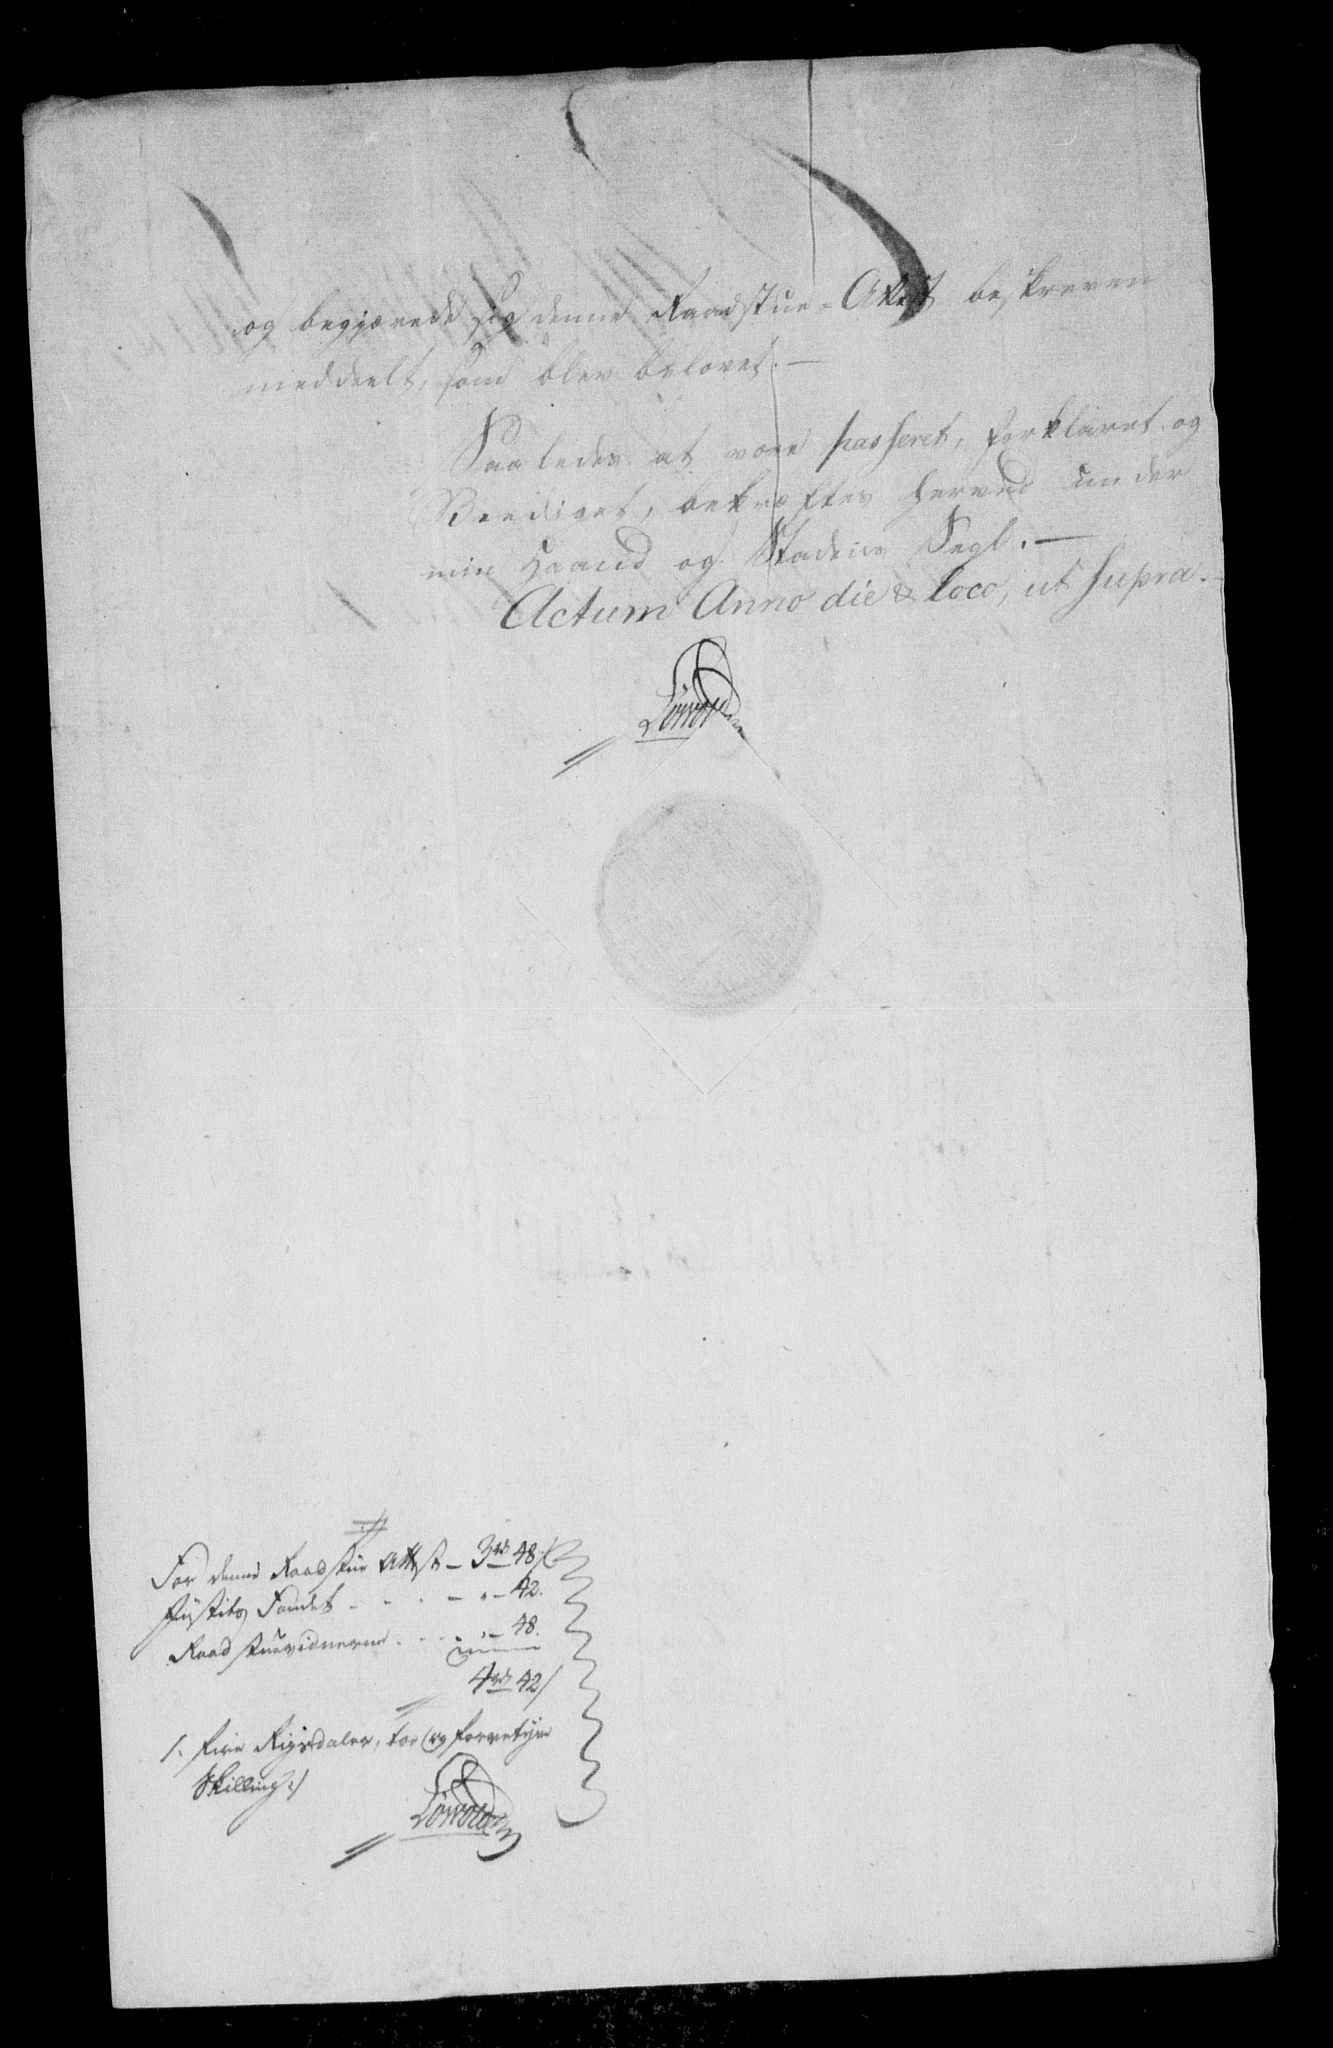 og begjærede sig denne Raadstue-Attest beskreven
meddeelt, som blev belovet.—
Saaledes at være passeret, forklaret og
Beediget, bekræftes herved under
min Haand og Stadens Segl.—
Actum Anno die & loco, ut supra.—
For denne Raadstue Attest — 3 rd 48 s
Justits Fondet - - - - " - 42.
Raadstuevidnerne - - - " - 48.
4 rd 42 s
/: Fire Rigsdaler, toe og førretyve
Skilling :/